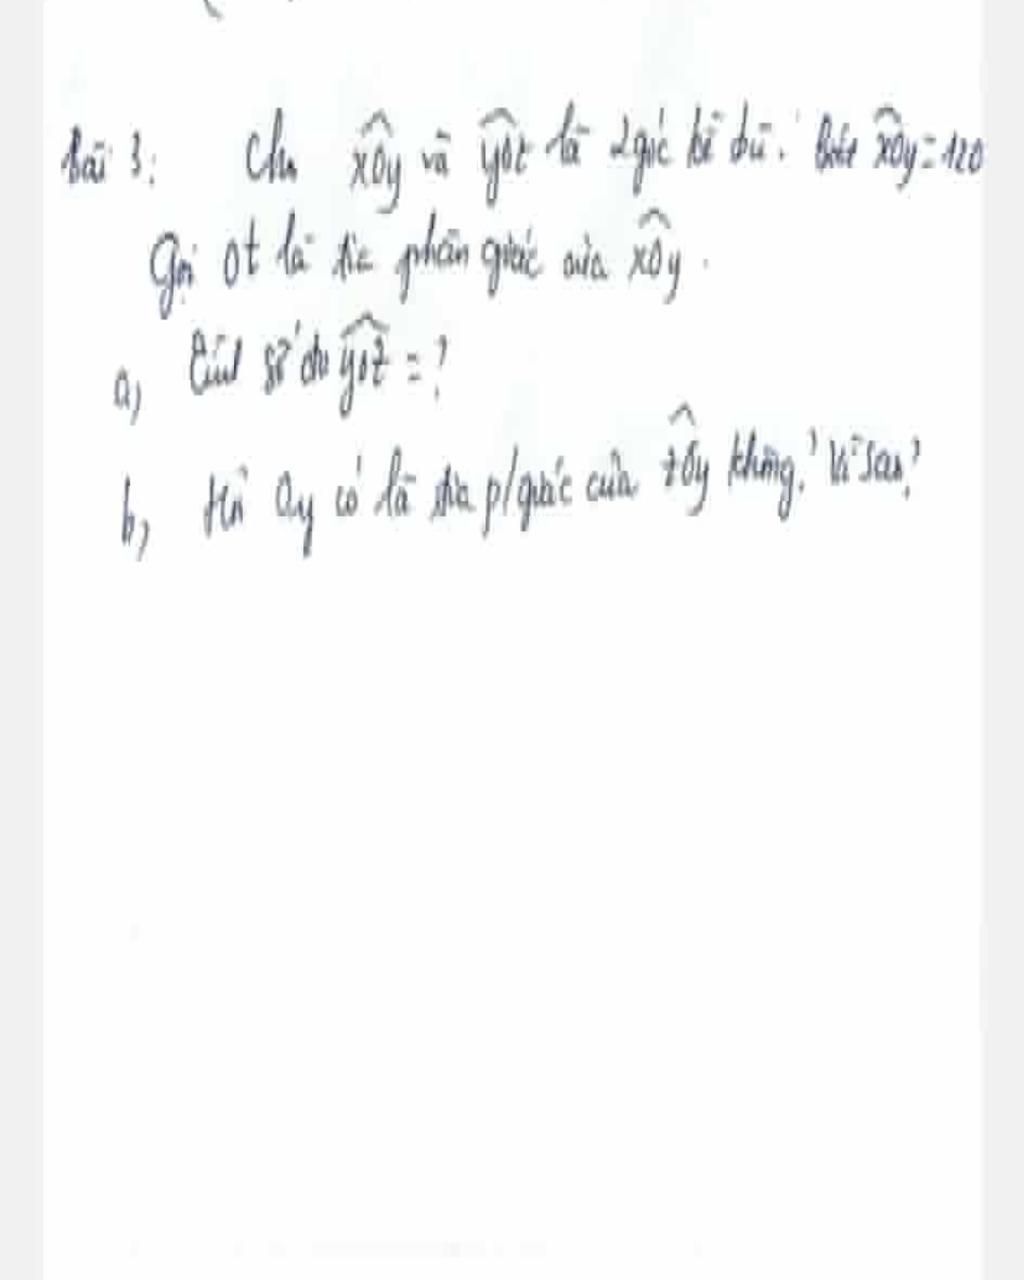 Bài 3: Cho xÔy và yÔz là 2 góc kề bù. Biết xÔy = 120
Gọi Ot là tia phân giác của xÔy.
a) Tính số đo yÔz = ?
b) tia Oy có là tia p/giác của tÔy không? Vì sao?